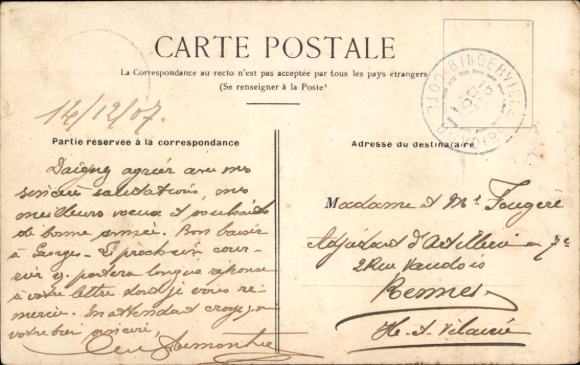 CARTE POSTALE
La Correspondance au recto n'est pas acceptée par tous les pays étrangers
(Se renseigner à la Poste)
BINGERVILLE
COTE D'IVOIRE
14/12/07.
Partie réservée à la correspondance
Daignez agréer avec mes
sincères salutations, mes
meilleurs vœux et souhaits
de bonne année. Bon baiser
à Georges. Le prochain cour-
rier portera longue réponse
à votre lettre dont je vous re-
mercie. En attendant croyez-moi
votre bien sincère,
Adresse du destinataire
Madame et Mr Fougeré
Adjudant d'Artillerie au 7e
2 Rue Vaudois
Rennes
Ille-et-Vilaine